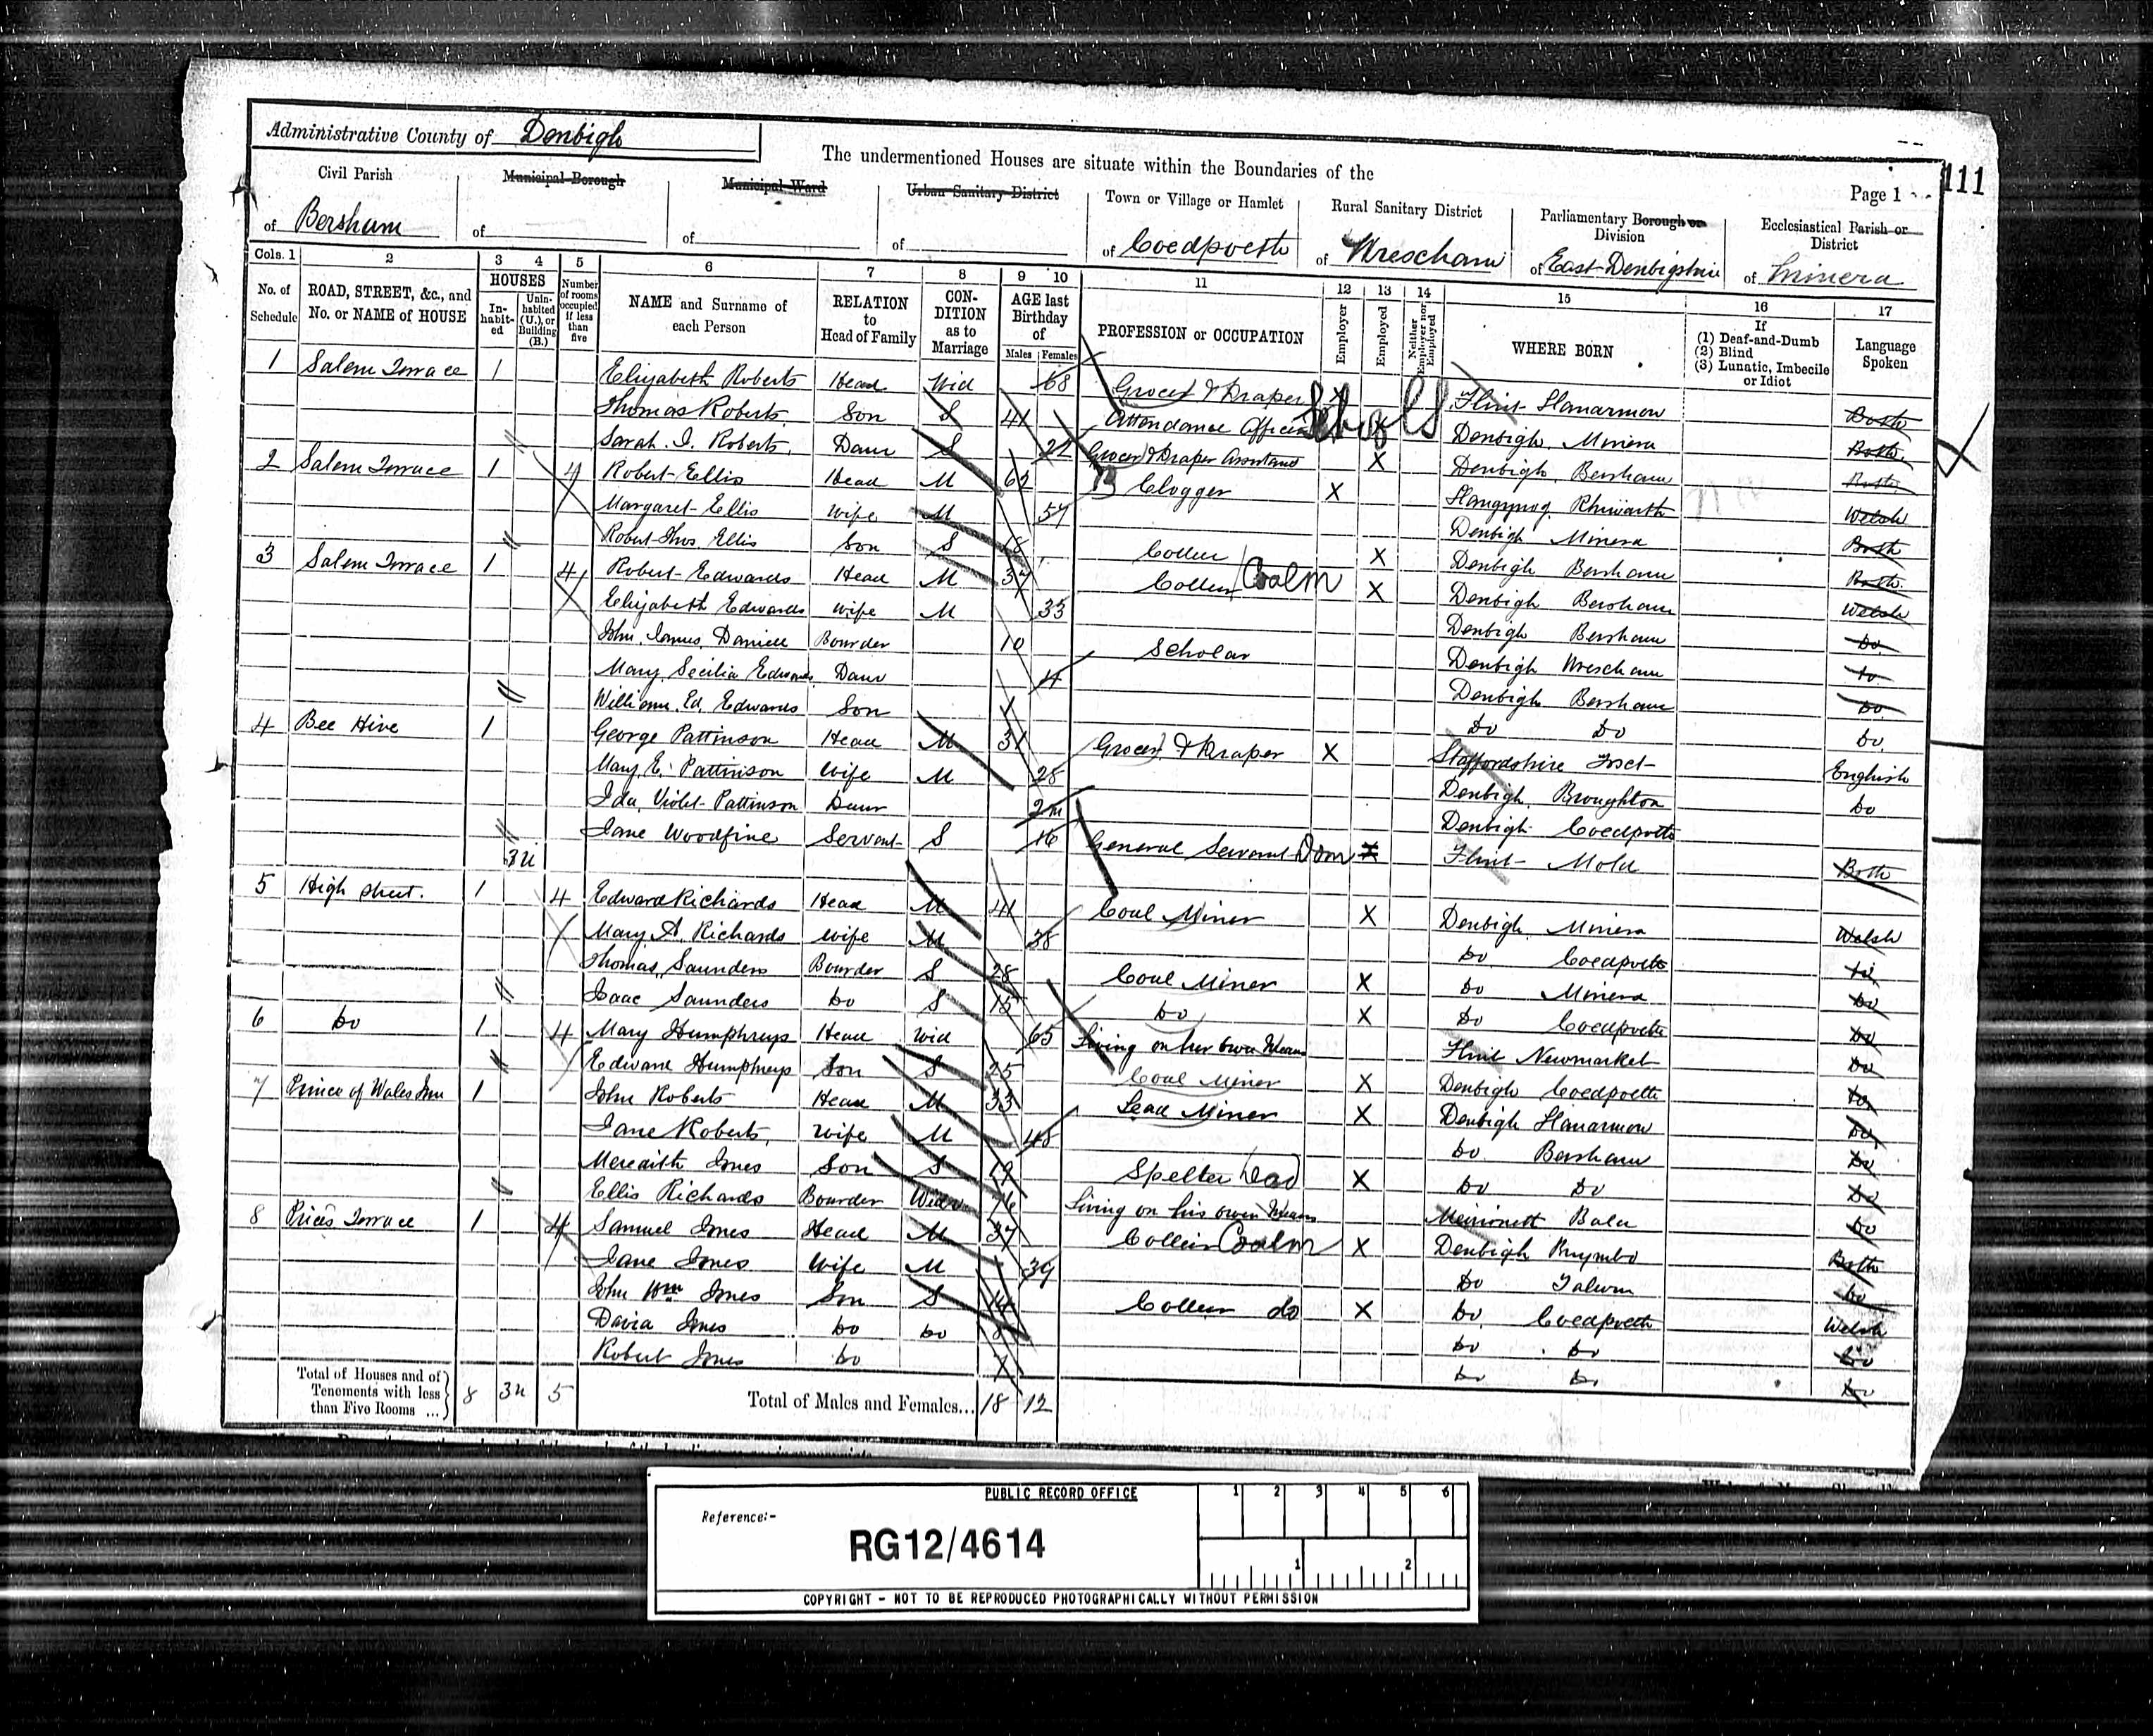 Administrative County of Denbigh
The undermentioned Houses are situate within the Boundaries of the
111
Page 1
Civil Parish of Bersham
Municipal Borough of
Municipal Ward of
Urban Sanitary District of
Town or Village or Hamlet of Coedpoeth
Rural Sanitary District of Wrexham
Parliamentary Borough or Division of East Denbigshire
Ecclesiastical Parish or District of Minera
Cols. 1 2 3 4 5 6 7 8 9 10 11 12 13 14 15 16 17
No. of Schedule
ROAD, STREET, &c., and No. or NAME of HOUSE
HOUSES
In-habit-ed
Unin-habited (U.), or Building (B.)
Number of rooms occupied if less than five
NAME and Surname of each Person
RELATION to Head of Family
CON-DITION as to Marriage
AGE last Birthday of
Males Females
PROFESSION or OCCUPATION
Employer
Employed
Neither Employer nor Employed
WHERE BORN
If (1) Deaf-and-Dumb (2) Blind (3) Lunatic, Imbecile or Idiot
Language Spoken
1 Salem Terrace 1 Elizabeth Roberts Head Wid 68 Grocer & Draper X Flint Llanarmon Both
Thomas Roberts Son S 41 Attendance Officer School X Denbigh Minera Both
Sarah. J. Roberts Daur S 22 Grocer & Draper Assistant X Denbigh Bersham Both
2 Salem Terrace 1 4 Robert Ellis Head M 62 Clogger X Llangynog Welsh
Margaret Ellis Wife M 57 Denbigh Minera Both
Robert Thos. Ellis Son S 18 Collier X Denbigh Bersham Both
3 Salem Terrace 1 4 Robert Edwards Head M 37 Collier Coal m X Denbigh Bersham Welsh
Elizabeth Edwards Wife M 33 Denbigh Bersham Do
John James Daniell Bourder 10 Scholar Denbigh Wrexham Do
Mary Secilia Edwards Daur 4 Denbigh Bersham Do
William. Ed. Edwards Son Do Do Do
4 Bee Hive 1 George Pattinson Head M 31 Grocer & Draper X Staffordshire English
Mary. E. Pattinson Wife M 28 Denbigh Broughton Do
Ida Violet Pattinson Daur 2m Denbigh Coedpoeth
Jane Woodfine Servant S 16 General Servant Dom X Flint Mold Both
3u
5 High Street. 1 4 Edward Richards Head M 41 Coal Miner X Denbigh Minera Welsh
Mary A. Richards Wife M 38 Do Coedpoeth Do
Thomas Saunders Bourder S 28 Coal Miner X Do Minera Do
Isaac Saunders Do S 15 Do X Do Coedpoeth Do
6 Do 1 4 Mary Humphreys Head Wid 65 Living on her own Means Flint Newmarket Do
Edward Humphreys Son S 25 Coal Miner X Denbigh Coedpoeth Do
7 Prince of Wales Inn 1 John Roberts Head M 33 Lead Miner X Denbigh Llanarmon Do
Jane Roberts Wife M 48 Do Bersham Do
Meredith Jones Son S 19 Spelter X Do Do Do
Ellis Richards Bourder Widr 76 Living on his own Means Merioneth Bala Do
8 Price's Terrace 1 4 Samuel Jones Head M 37 Collier Coal m X Denbigh Brymbo Both
Jane Jones Wife M 39 Do Talwrn Do
John Wm Jones Son S 14 Collier do X Do Coedpoeth Welsh
David Jones Do Do 8 Do Do Do
Robert Jones Do Do Do Do
Total of Houses and of Tenements with less than Five Rooms ... 8 3u 5
Total of Males and Females... 18 12
PUBLIC RECORD OFFICE
1 2 3 4 5 6
Reference:-
RG12/4614
1 2
COPYRIGHT - NOT TO BE REPRODUCED PHOTOGRAPHICALLY WITHOUT PERMISSION